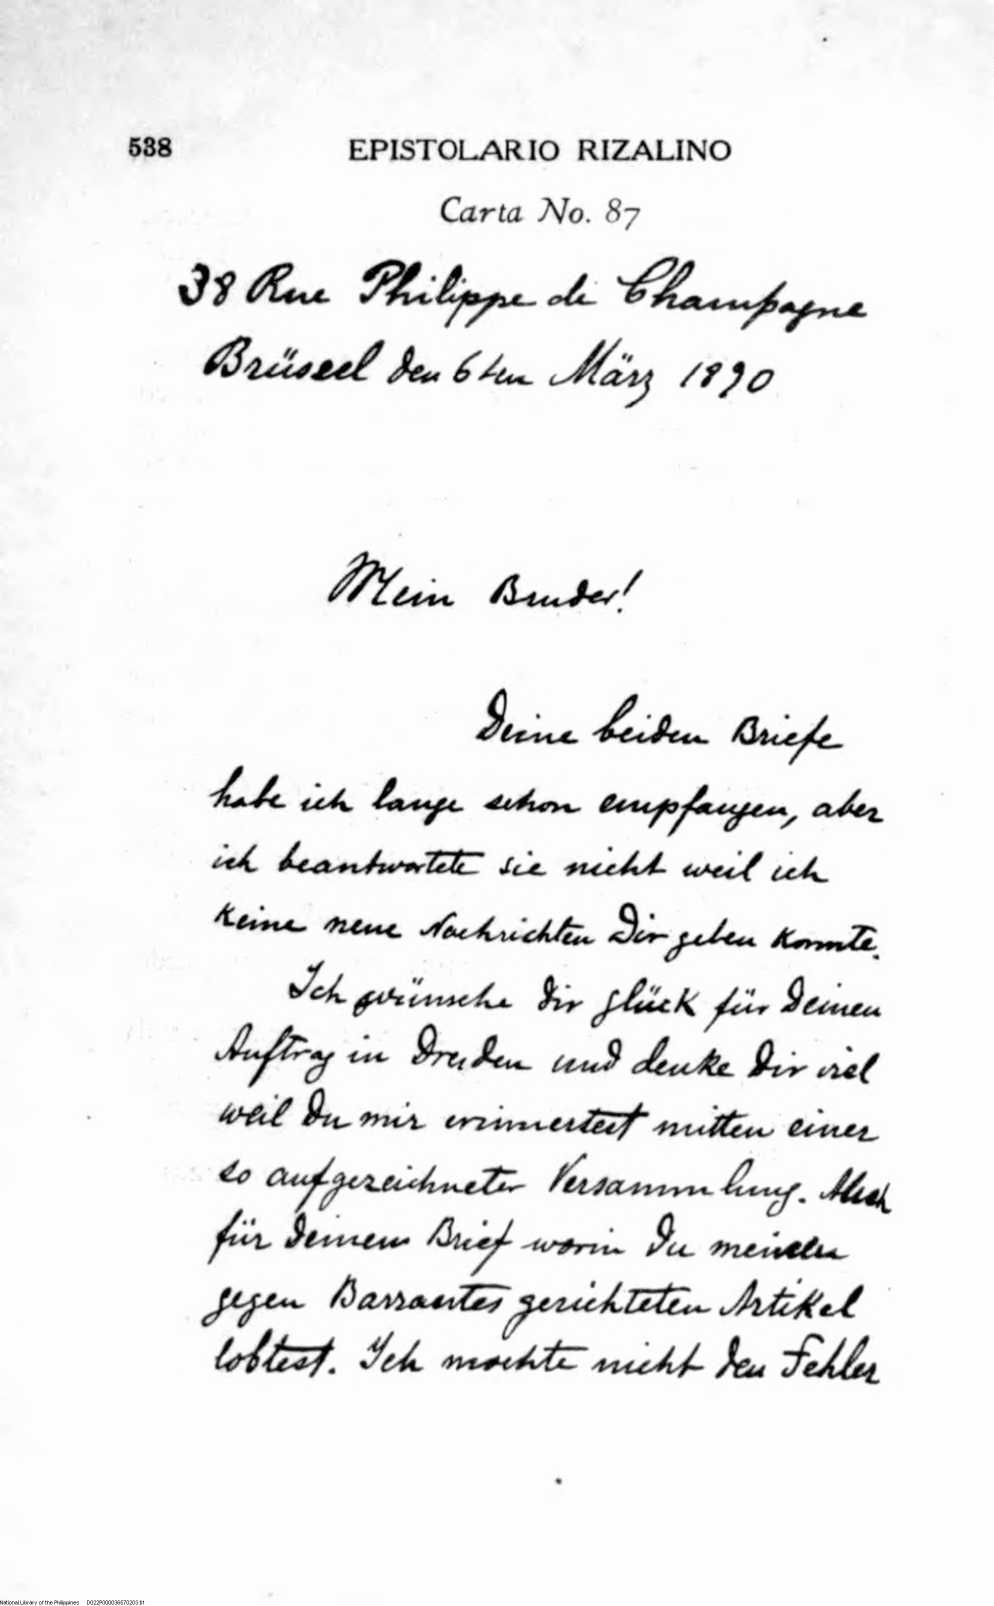 538 EPISTOLARIO RIZALINO
Carta No. 87
38 Rue Philippe de Champagne
Brüssel den 6ten März 1890
Mein Bruder!
Deine beiden Briefe
habe ich lange schon empfangen, aber
ich beantwortete sie nicht weil ich
keine neue Nachrichten Dir geben konnte.
Ich wünsche dir glück für Deinen
Auftrag in Dresden und denke Dir viel
weil Du mir erinnertest mitten einer
so aufgezeichneter Versammlung. Auch
für Deinen Brief worin Du meinen
gegen Barrantes gerichteten Artikel
lobtest. Ich mochte nicht den Fehler
National Library of the Philippines